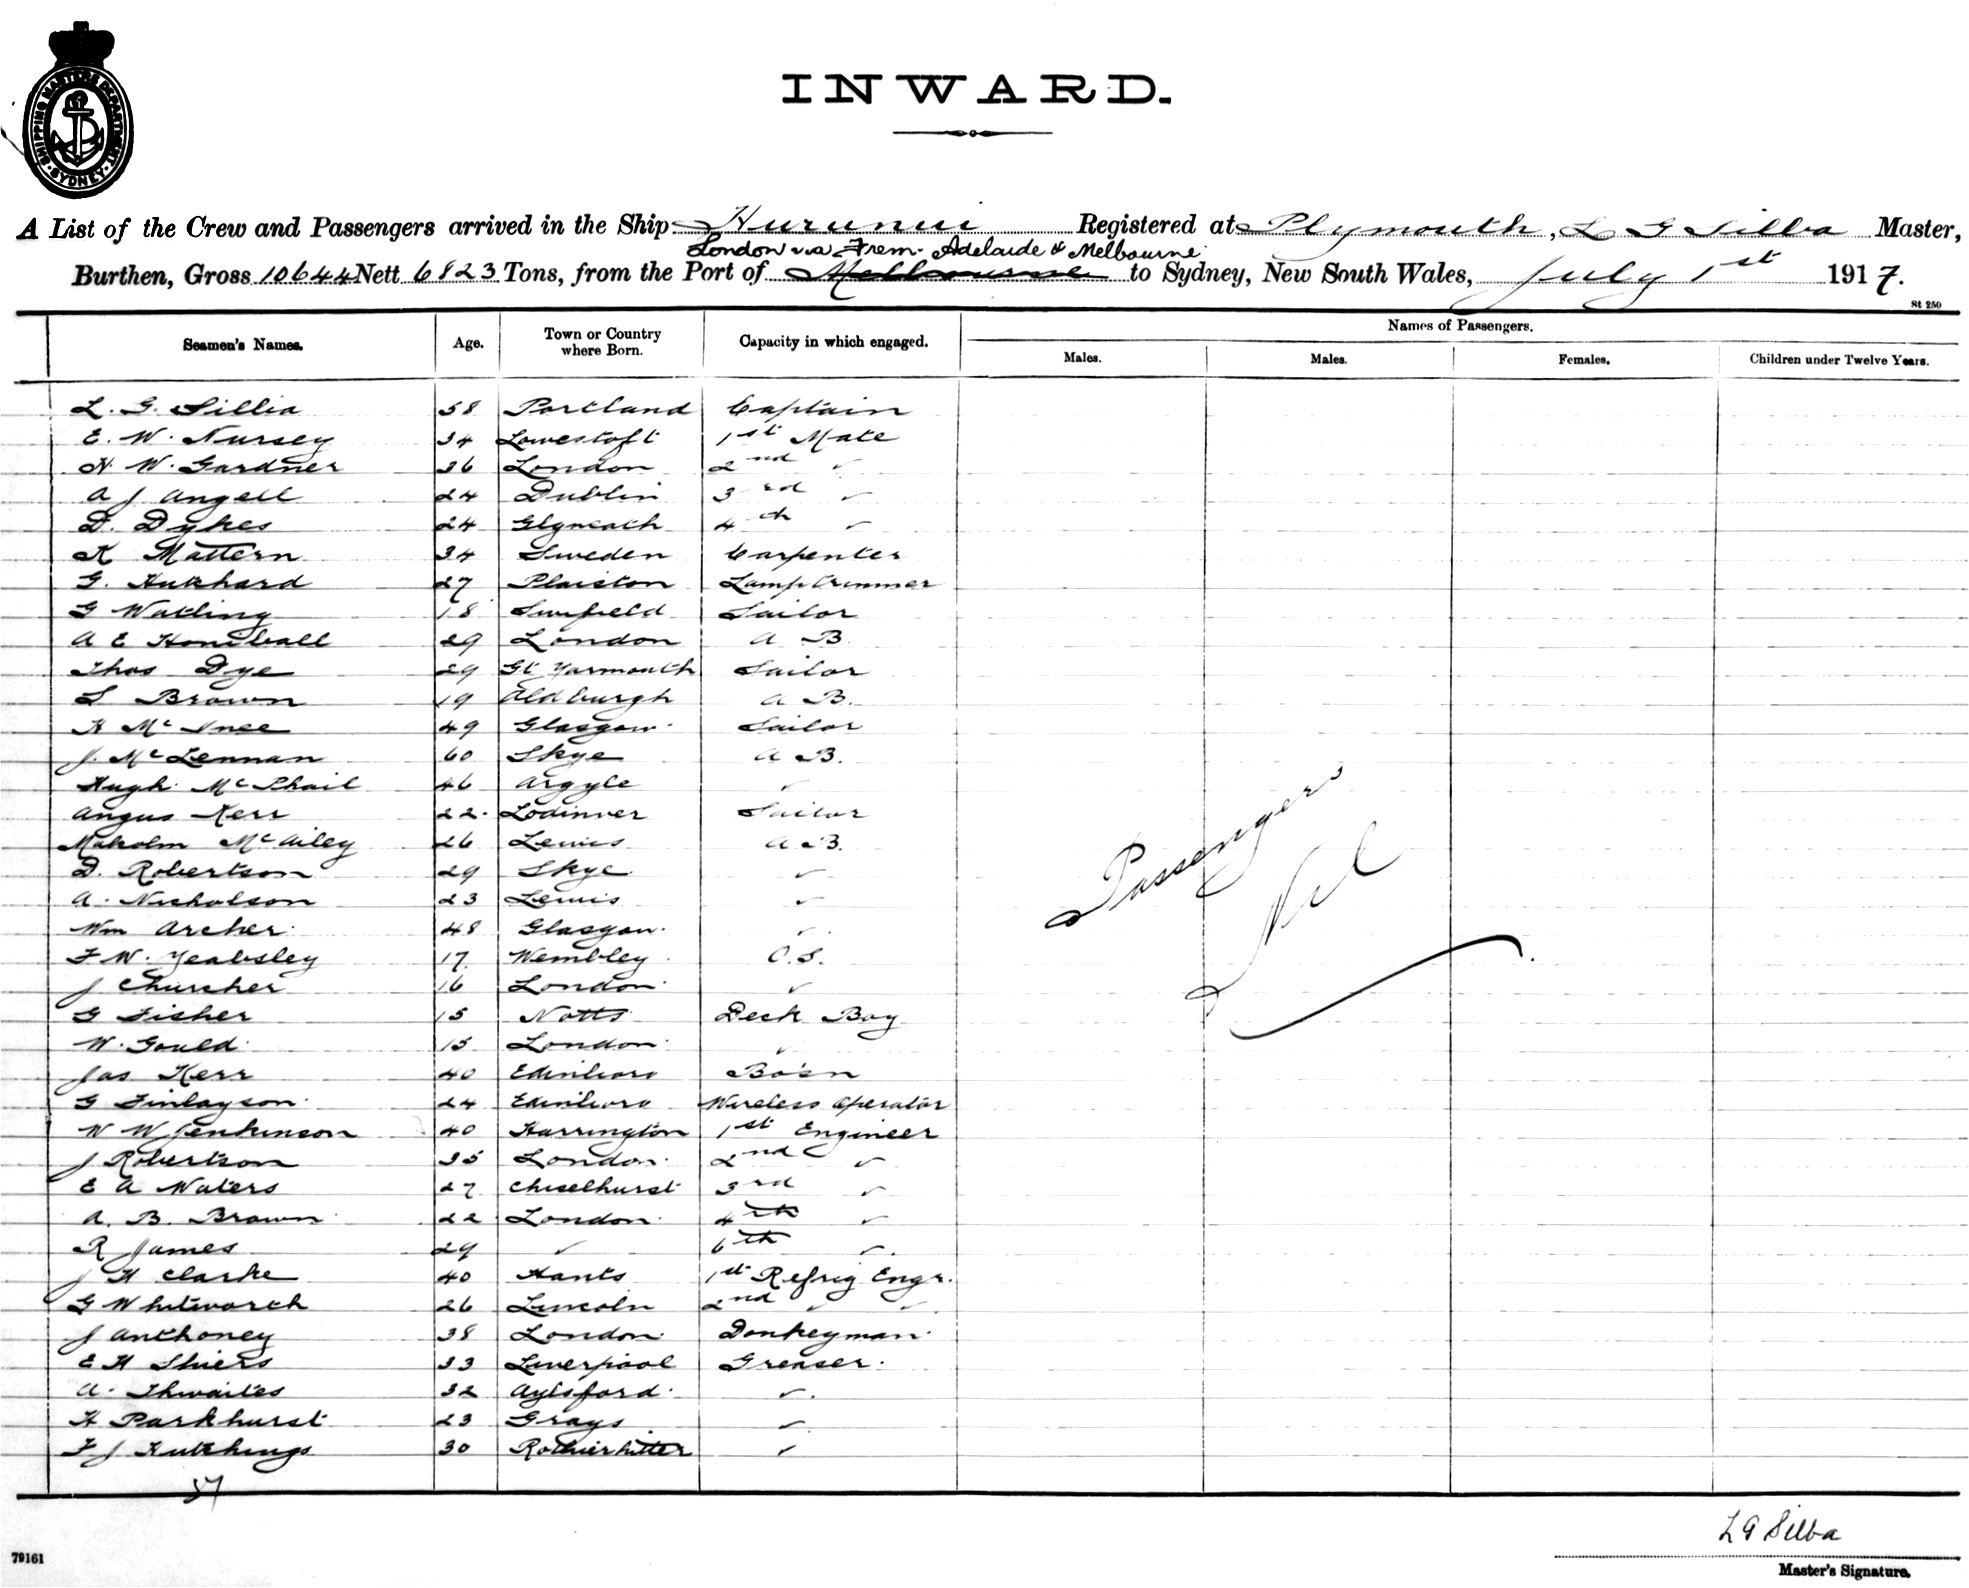 SHIPPING MASTERS DEPARTMENT
SYDNEY
INWARD.
A List of the Crew and Passengers arrived in the Ship Hurunui Registered at Plymouth, L G Silba Master,
London via Frem. Adelaide & Melbourne
Burthen, Gross 10644 Nett 6823 Tons, from the Port of Melbourne to Sydney, New South Wales, July 1st 1917.
St 250
Seamen's Names. Age. Town or Country where Born. Capacity in which engaged. Names of Passengers.
Males. Males. Females. Children under Twelve Years.
L. G. Sillia 58 Portland Captain
E. W. Nursey 34 Lowestoft 1st Mate
H. W. Gardner 36 London 2nd ✓
A J Angell 24 Dublin 3rd ✓
D. Dykes 24 Glyneath 4th ✓
K Mattern 34 Sweden Carpenter
G. Hukhard 27 Plaiston Lamptrimmer
G Watling 18 Swefield Sailor
A E Honeball 29 London A B
Thos Dye 29 Gt Yarmouth Sailor
S Brown 19 Aldburgh A B.
H McInee 49 Glasgow Sailor
J. McLennan 60 Skye A B.
Hugh McPhail 46 Argyle ✓
Angus Kerr 22 Lodinver Sailor
Malcolm McAiley 26 Lewis A B.
D. Robertson 29 Skye ✓
A. Nicholson 23 Lewis ✓
Wm Archer 48 Glasgow ✓
F. W. Yeabsley 17 Wembley O.S.
J Churcher 16 London ✓
G Fisher 15 Notts Deck Boy
W. Gould 15 London ✓
Jas Kerr 40 Edinboro Bo'sn
G Finlayson 24 Edinboro Wireless Operator
W W Jenkinson 40 Harrington 1st Engineer
J Robertson 35 London 2nd ✓
E A Waters 27 Chiselhurst 3rd ✓
A. B. Brown 22 London 4th ✓
R James 29 ✓ 6th ✓
J H Clarke 40 Hants 1st Refrig Engr.
G Whitworth 26 Lincoln 2nd ✓ ✓
J Anthoney 38 London Donkeyman
E H Shiers 33 Liverpool Greaser.
A. Thwaites 32 Aylsford ✓
H Parkhurst 23 Grays ✓
F J Hutchings 30 Rotherhitter ✓
37
Passengers
Nil
L G Silba
Master's Signature.
79161